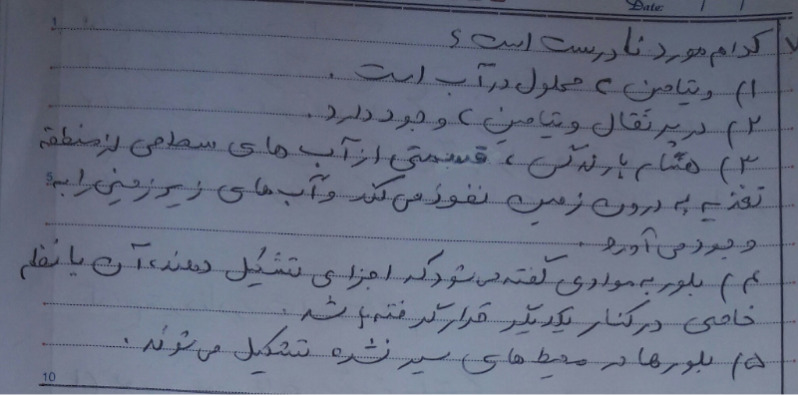 Date: / /
۷ کدام مورد نادرست است؟
۱) ویتامین c محلول در آب است.
۲) در پرتقال ویتامین c وجود دارد.
۳) هنگام بارندگی، قسمتی از آب های سطحی از منطقه
تغذیه به درون زمین نفوذ می کند و آب های زیرزمینی را به
وجود می آورد.
۴) بلور به موادی گفته می شود که اجزای تشکیل دهنده آن با نظم
خاصی در کنار یکدیگر قرار گرفته باشد.
۵) بلورها در محیط های سیر نشده تشکیل می شوند.
1
5
10